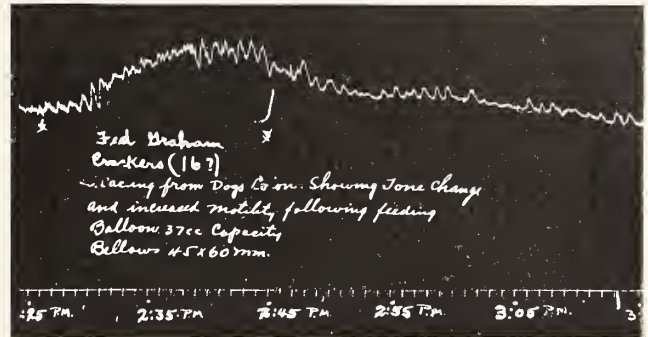 x
x
Fed Graham
Crackers (16?)
Tracing from Dogs Colon. Showing Tone Change
and increased motility following feeding
Balloon 37cc Capacity
Bellows 45x60mm.
:25 P.M. 2:35 P.M. 2:45 P.M. 2:55 P.M. 3:05 P.M. 3: